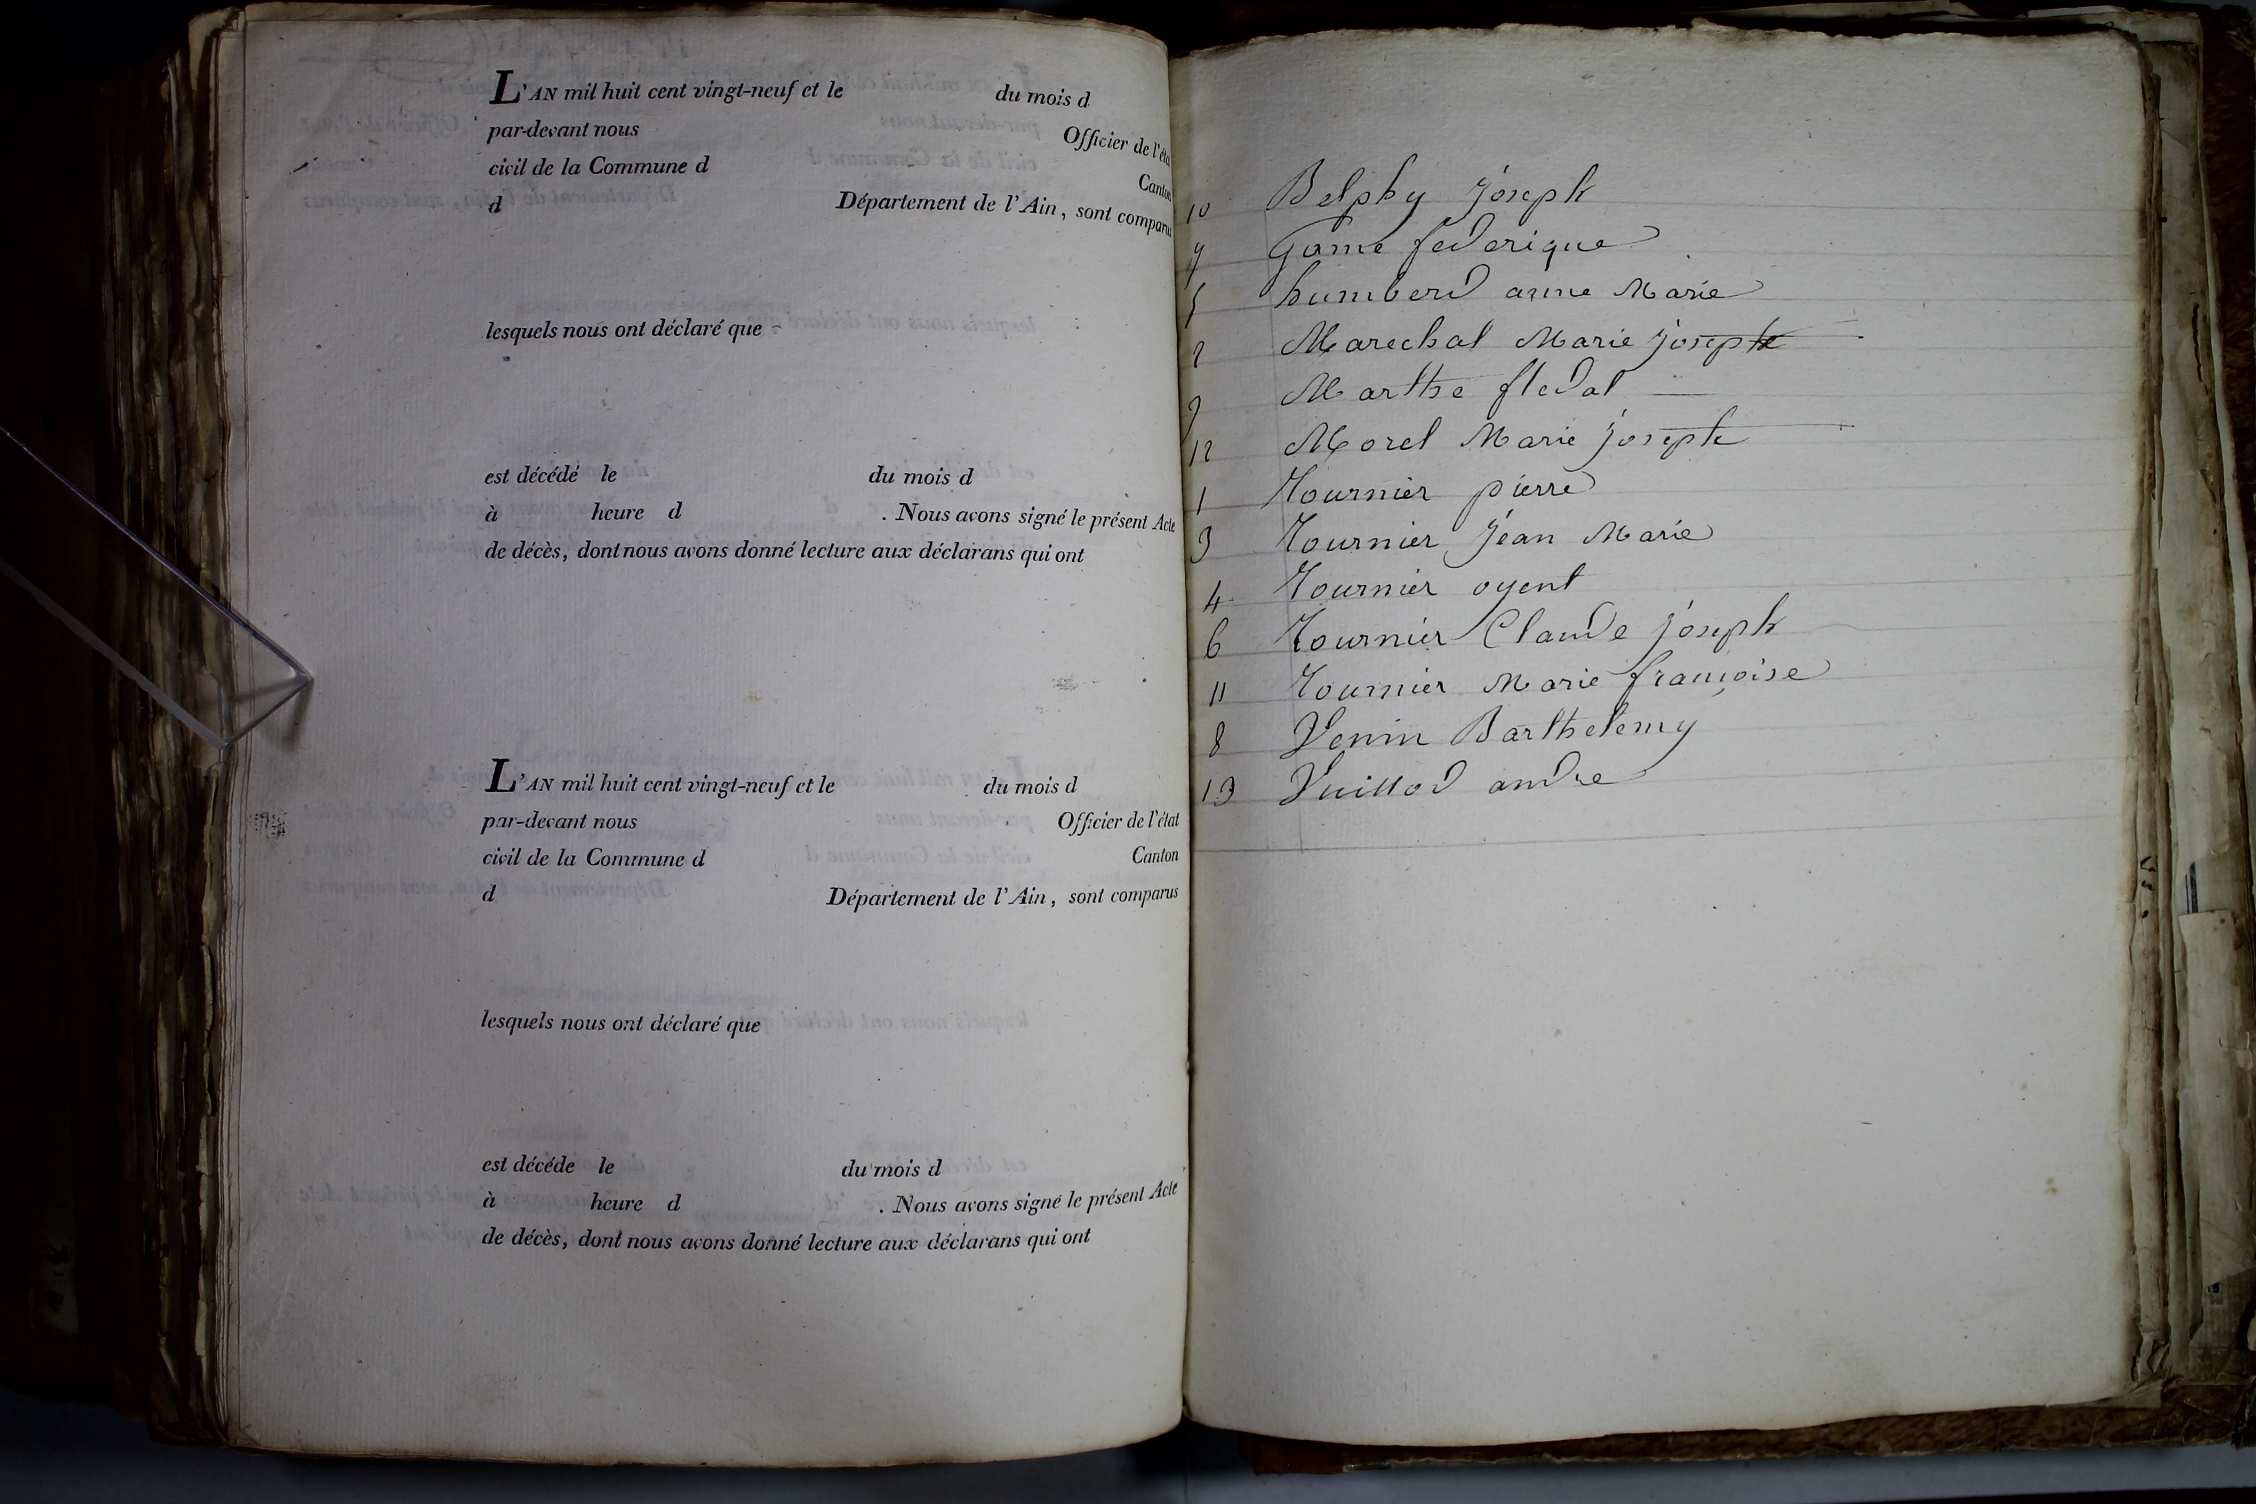 L'AN mil huit cent vingt-neuf et le du mois d
par-devant nous Officier de l'éta
civil de la Commune d Canton
d Département de l'Ain, sont comparus
lesquels nous ont déclaré que
est décédé le du mois d
à heure d . Nous avons signé le présent Acte
de décès, dont nous avons donné lecture aux déclarans qui ont
L'AN mil huit cent vingt-neuf et le du mois d
par-devant nous Officier de l'état
civil de la Commune d Canton
d Département de l'Ain, sont comparus
lesquels nous ont déclaré que
est décéde le du mois d
à heure d . Nous avons signé le présent Acte
de décès, dont nous avons donné lecture aux déclarans qui ont
10 Belphy joseph
9 Game federique
5 humberd anne Marie
2 Marechal Marie joseph
7 Marthe
12 Morel Marie joseph
1 Tournier pierre
3 Tournier jean Marie
4 Tournier oyent
6 Tournier Claude joseph
11 Tournier Marie françoise
8 Venin Barthelemy
13 Vuillod andre